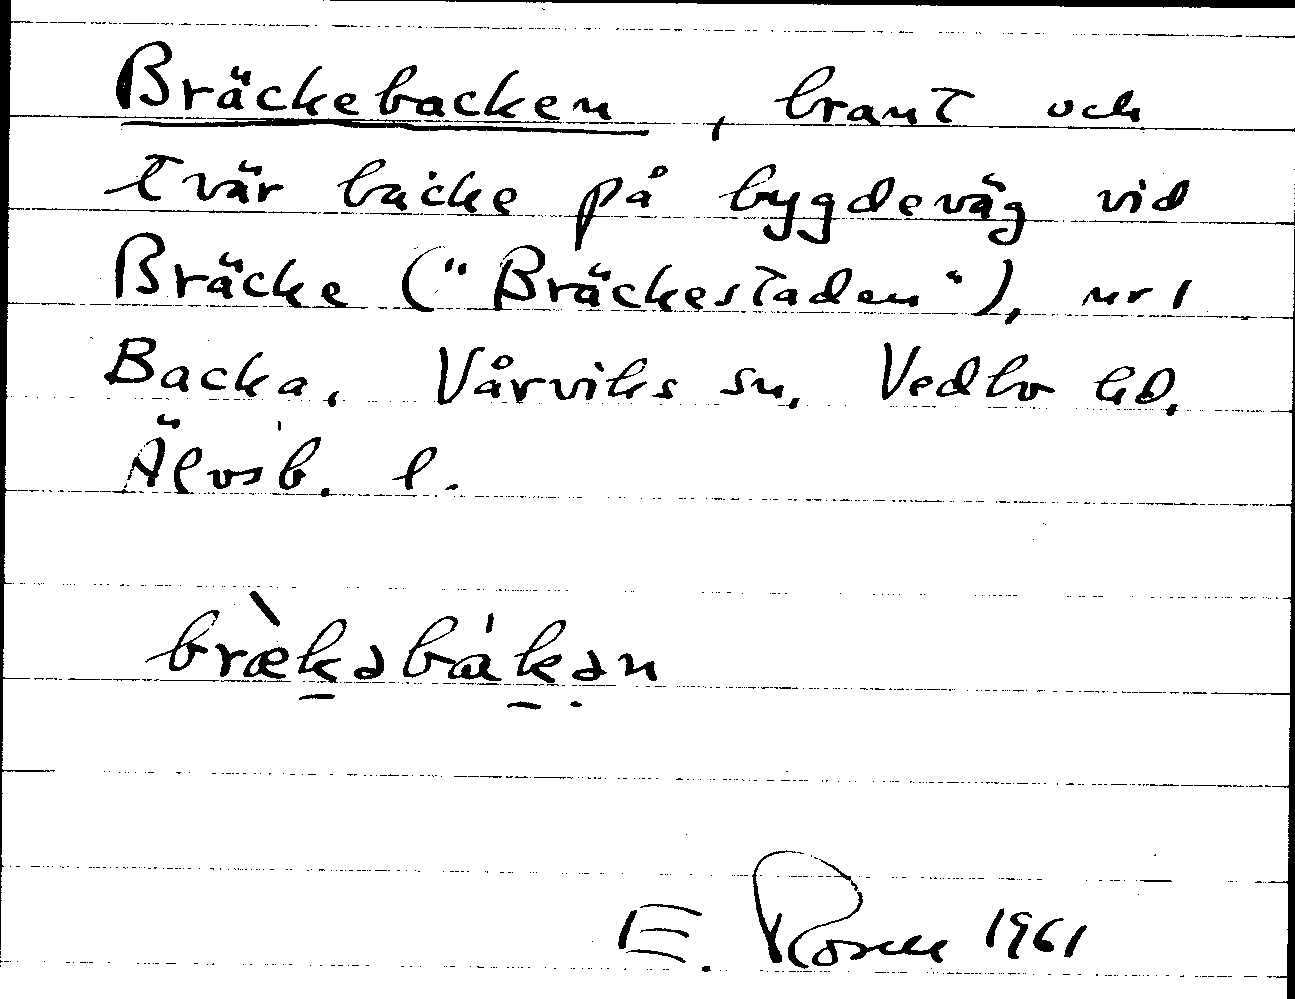 Bräckebacken, brant och
tvär backe på bygdeväg vid
Bräcke ("Bräckestaden"), nr 1
Backa, Vårviks sn, Vedbo hd,
Älvsb. l.
bræ̀kəbákən
E. Rosen 1961